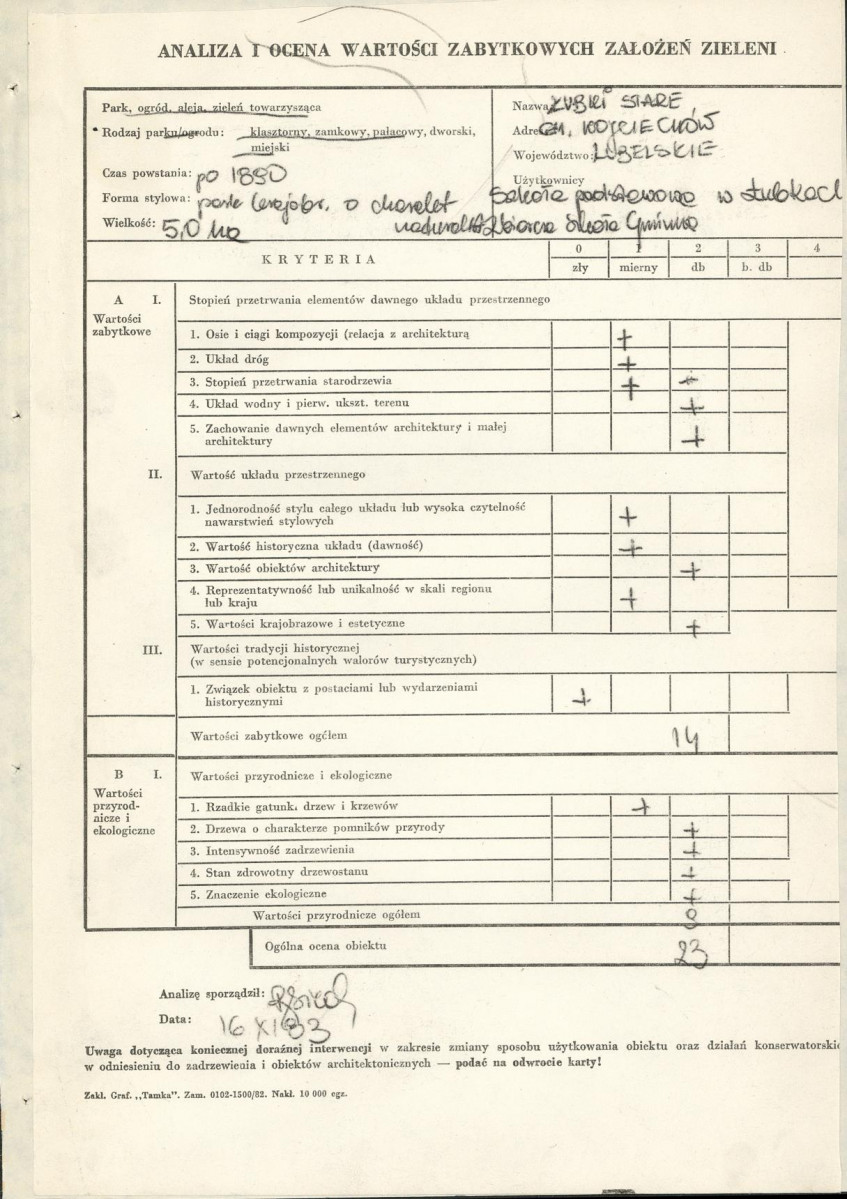 ANALIZA I OCENA WARTOŚCI ZABYTKOWYCH ZAŁOŻEŃ ZIELENI
Park, ogród, aleja, zieleń towarzysząca
Rodzaj parku/ogrodu: klasztorny, zamkowy, pałacowy, dworski,
miejski
Czas powstania: po 1890
Forma stylowa: park krajobr. o charakt
naturalist
Wielkość: 5,0 ha
Nazwa ŁUBKI STARE
Adres GM. WOJCIECHÓW
Województwo: LUBELSKIE
Użytkownicy
Szkoła podstawowa w Łubkach
Zbiorcza Szkoła Gminna
KRYTERIA
0 1 2 3 4
zły mierny db b. db
A I. Stopień przetrwania elementów dawnego układu przestrzennego
Wartości
zabytkowe
1. Osie i ciągi kompozycji (relacja z architekturą +
2. Układ dróg +
3. Stopień przetrwania starodrzewia + +
4. Układ wodny i pierw. ukszt. terenu +
5. Zachowanie dawnych elementów architektury i małej
architektury +
II. Wartość układu przestrzennego
1. Jednorodność stylu całego układu lub wysoka czytelność
nawarstwień stylowych +
2. Wartość historyczna układu (dawność) +
3. Wartość obiektów architektury +
4. Reprezentatywność lub unikalność w skali regionu
lub kraju +
5. Wartości krajobrazowe i estetyczne +
III. Wartości tradycji historycznej
(w sensie potencjonalnych walorów turystycznych)
1. Związek obiektu z postaciami lub wydarzeniami
historycznymi +
Wartości zabytkowe ogółem 14
B I. Wartości przyrodnicze i ekologiczne
Wartości
przyrod-
nicze i
ekologiczne
1. Rzadkie gatunki drzew i krzewów +
2. Drzewa o charakterze pomników przyrody +
3. Intensywność zadrzewienia +
4. Stan zdrowotny drzewostanu +
5. Znaczenie ekologiczne +
Wartości przyrodnicze ogółem 9
Ogólna ocena obiektu 23
Analizę sporządził:
Data: 16 XI 83
Uwaga dotycząca koniecznej doraźnej interwencji w zakresie zmiany sposobu użytkowania obiektu oraz działań konserwatorskic
w odniesieniu do zadrzewienia i obiektów architektonicznych — podać na odwrocie karty!
Zakł. Graf. „Tamka". Zam. 0102-1500/82. Nakł. 10 000 egz.